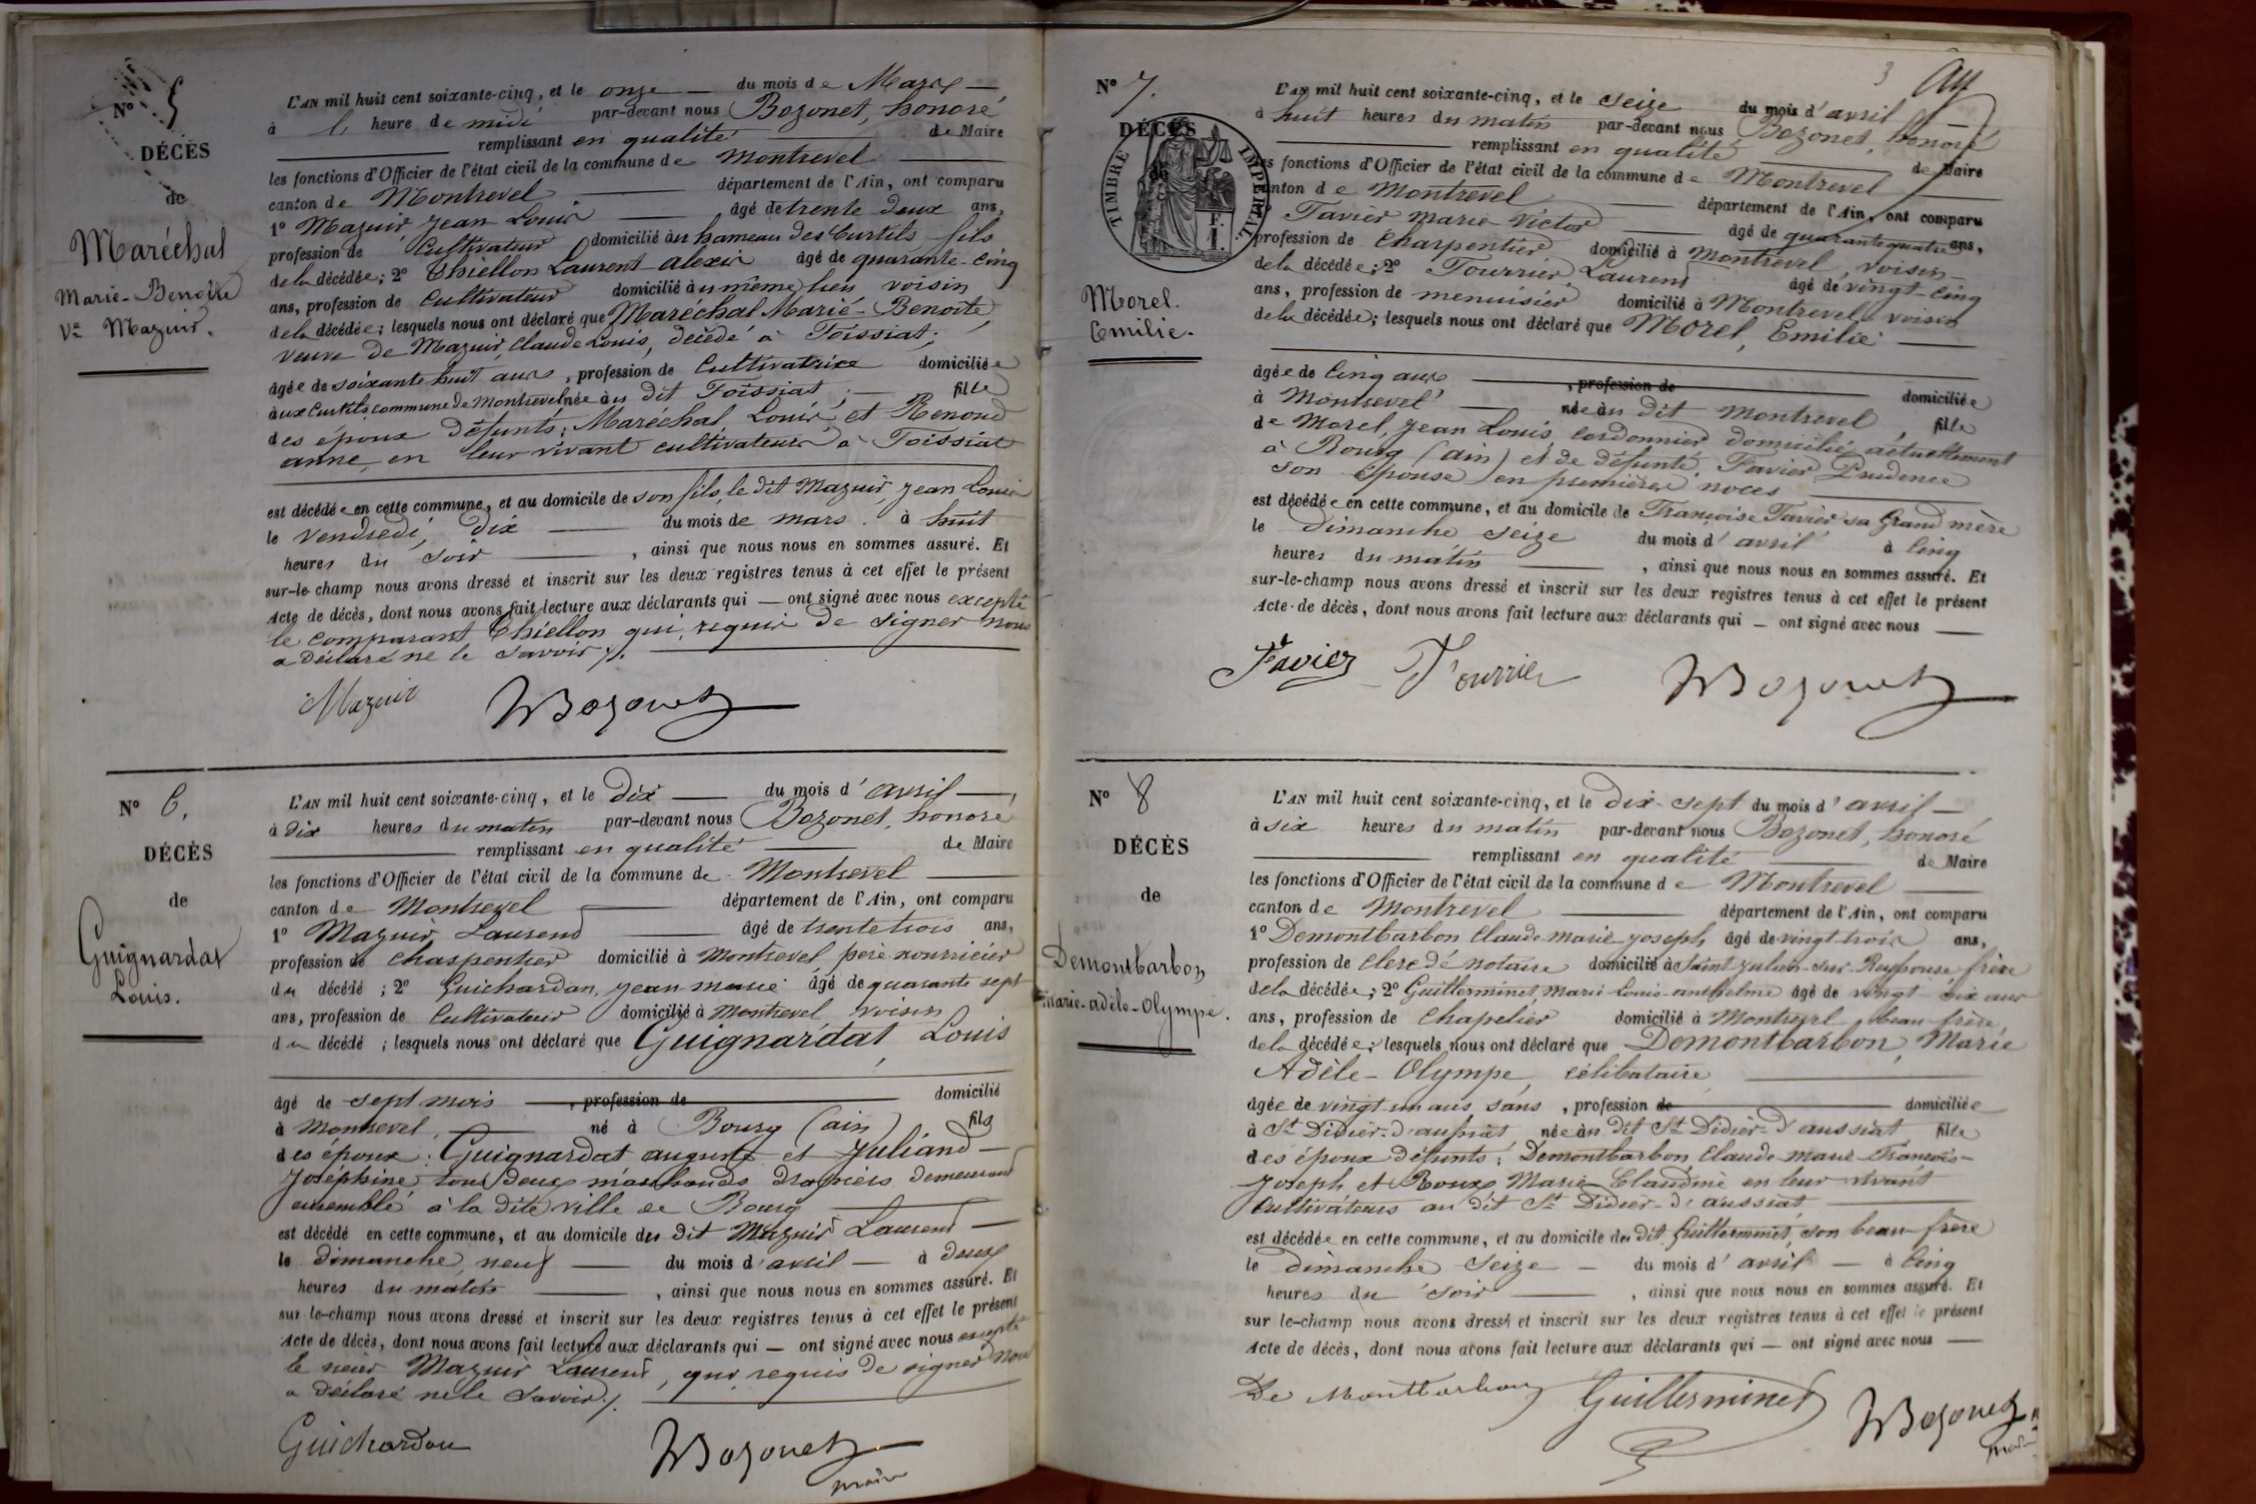 N° 5
DÉCÈS
de
Maréchal
Marie-Benoîte
Ve Mazuir.
L'AN mil huit cent soixante-cinq, et le onze du mois de Mars
à l heure de midi par-devant nous Bozonet, honoré
remplissant en qualité de Maire
les fonctions d'Officier de l'état civil de la commune de Montrevel
canton de Montrevel département de l'Ain, ont comparu
1° Mazuir Jean Louis âgé de trente deux ans,
profession de Cultivateur domicilié au hameau des Curtils fils
de la décédée; 2° Chiellon Laurent alexis âgé de quarante-cinq
ans, profession de Cultivateur domicilié au même lieu voisin
de la décédée; lesquels nous ont déclaré que Maréchal Marie-Benoîte,
veuve de Mazuir, Claude Louis, décédé à Foissiat,
âgée de soixante huit ans, profession de Cultivatrice domiciliée
aux Curtils commune de Montrevel née au dit Foissiat; fille
des époux défunts: Maréchal, Louis et Renoud
anne, en leur vivant cultivateurs à Foissiat
est décédée en cette commune, et au domicile de son fils, le dit Mazuir, Jean Louis
le vendredi, dix du mois de mars à huit
heures du soir, ainsi que nous nous en sommes assuré. Et
sur-le-champ nous avons dressé et inscrit sur les deux registres tenus à cet effet le présent
Acte de décès, dont nous avons fait lecture aux déclarants qui — ont signé avec nous excepté
le comparant Chiellon qui, requis de signer nous
a déclaré ne le savoir /.
Mazuir Bozonet
N° 6.
DÉCÈS
de
Guignardat
Louis.
L'AN mil huit cent soixante-cinq, et le Dix du mois d'avril,
à dix heures du matin par-devant nous Bozonet, honoré
remplissant en qualité de Maire
les fonctions d'Officier de l'état civil de la commune de Montrevel
canton de Montrevel département de l'Ain, ont comparu
1° Mazuir, Laurent âgé de trente trois ans,
profession de Charpentier domicilié à Montrevel père nourricier
du décédé; 2° Guichardan, jean marie âgé de quarante sept
ans, profession de Cultivateur domicilié à Montrevel voisin
du décédé; lesquels nous ont déclaré que Guignardat, Louis
âgé de sept mois, profession de domicilié
à Montrevel, né à Bourg (ain) fils
des époux: Guignardat auguste et Juliand
Joséphine tous deux marchands drapiers demeurant
ensemble à la dite ville de Bourg
est décédé en cette commune, et au domicile du dit Mazuir Laurent
le dimanche neuf du mois d'avril à deux
heures du matin, ainsi que nous nous en sommes assuré. Et
sur-le-champ nous avons dressé et inscrit sur les deux registres tenus à cet effet le présent
Acte de décès, dont nous avons fait lecture aux déclarants qui — ont signé avec nous excepté
le Mazuir Laurent, qui, requis de signer nous
a déclaré ne le savoir /.
Guichardan Bozonet
maire
3
N° 7.
DÉCÈS
de
TIMBRE IMPÉRIAL
Morel.
Emilie.
L'AN mil huit cent soixante-cinq, et le seize du mois d'avril
à huit heures du matin par-devant nous Bozonet, honoré
remplissant en qualité de Maire
les fonctions d'Officier de l'état civil de la commune de Montrevel
canton de Montrevel département de l'Ain, ont comparu
Favier Marie Victor âgé de quarante quatre ans,
profession de Charpentier domicilié à Montrevel, voisin
de la décédée; 2° Fourrier, Laurent âgé de vingt-cinq
ans, profession de menuisier domicilié à Montrevel voisin
de la décédée; lesquels nous ont déclaré que Morel, Emilie
âgée de Cinq ans, profession de domiciliée
à Montrevel née au dit Montrevel, fille
de Morel, Jean Louis, cordonnier domicilié actuellement
à Bourg (ain) et de défunte Favier Prudence
son épouse en premières noces
est décédée en cette commune, et au domicile de Françoise Favier sa Grand mère
le dimanche seize du mois d'avril à Cinq
heures du matin, ainsi que nous nous en sommes assuré. Et
sur-le-champ nous avons dressé et inscrit sur les deux registres tenus à cet effet le présent
Acte de décès, dont nous avons fait lecture aux déclarants qui — ont signé avec nous
Favier Fourrier Bozonet
N° 8
DÉCÈS
de
Demontbarbon
Marie-adèle-Olympe.
L'AN mil huit cent soixante-cinq, et le Dix-sept du mois d'avril
à six heures du matin par-devant nous Bozonet, honoré
remplissant en qualité de Maire
les fonctions d'Officier de l'état civil de la commune de Montrevel
canton de Montrevel département de l'Ain, ont comparu
1° Demontbarbon Claude marie joseph âgé de vingt trois ans,
profession de Clerc de notaire domicilié à Saint Julien-sur-Reyssouse frère
de la décédée; 2° Guillerminet, Marie Louis-anthelme âgé de vingt six ans
ans, profession de Chapelier domicilié à Montrevel beau-frère
de la décédée; lesquels nous ont déclaré que Demontbarbon, Marie
Adèle-Olympe, célibataire
âgée de vingt un ans, sans, profession de domiciliée
à St Didier-d'aussiat née au dit St Didier-d'aussiat fille
des époux défunts: Demontbarbon Claude-marie-François-
Joseph et Roux Marie Claudine en leur vivant
Cultivateurs au dit St Didier-d'aussiat
est décédée en cette commune, et au domicile du dit Guillerminet, son beau-frère
le dimanche seize du mois d'avril à Cinq
heures du soir, ainsi que nous nous en sommes assuré. Et
sur le-champ nous avons dressé et inscrit sur les deux registres tenus à cet effet le présent
Acte de décès, dont nous avons fait lecture aux déclarants qui — ont signé avec nous
De Montbarbon Guillerminet Bozonet